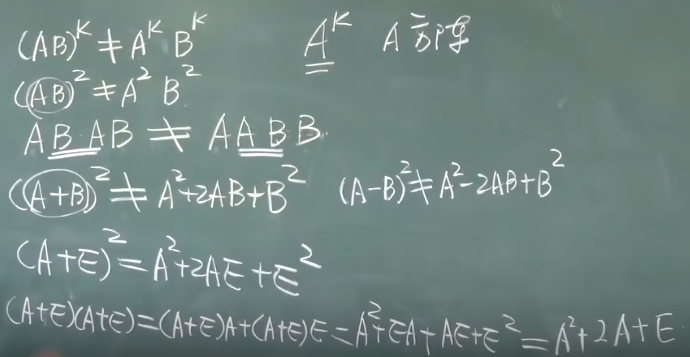 (AB)^K ≠ A^K B^K    A^K  A 方阵
(AB)^2 ≠ A^2 B^2
ABAB ≠ AABB
(A+B)^2 ≠ A^2+2AB+B^2    (A-B)^2 ≠ A^2-2AB+B^2
(A+E)^2 = A^2+2AE+E^2
(A+E)(A+E)=(A+E)A+(A+E)E=A^2+EA+AE+E^2=A^2+2A+E